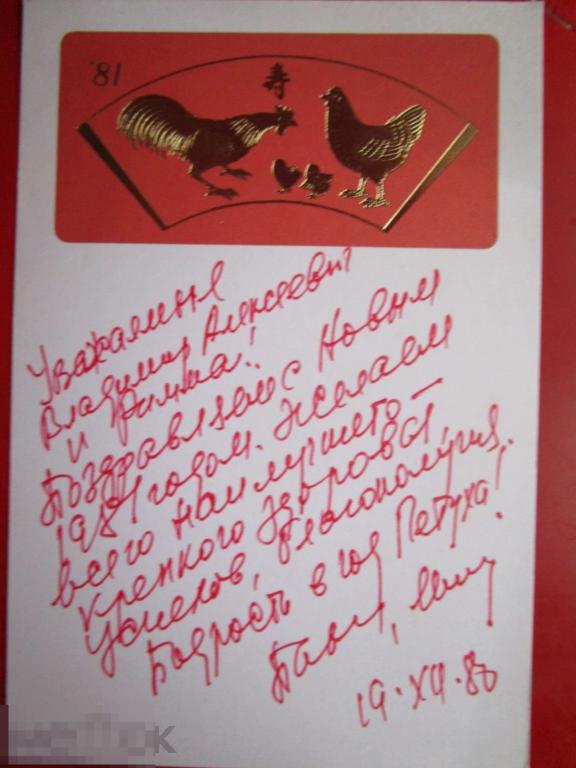 '81
寿
Уважаемые
Владимир Алексеевич
и Римма!
Поздравляю с Новым
1981 годом. Желаем
всего наилучшего –
крепкого здоровья,
успехов, благополучия.
Бодрость в год Петуха!
19.XII.80